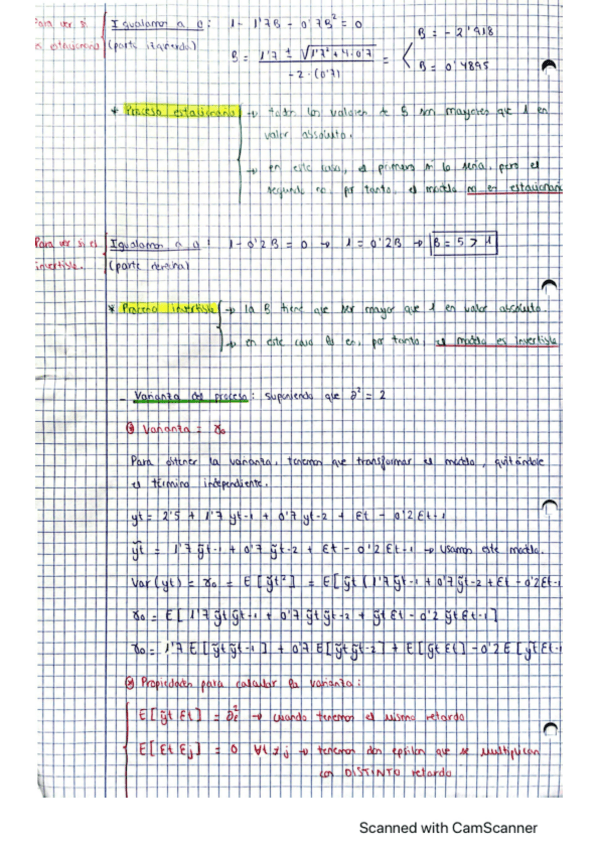 Para ver si es estacionario
Igualamos a 0: 1 - 1'7B - 0'7B² = 0
(parte izquierda)
B = 1'7 ± √1'7² + 4·0'7 / -2·(0'7) =
B = -2'918
B = 0'4895
* Proceso estacionario → todos los valores de B son mayores que 1 en
valor absoluto.
→ en este caso, el primero si lo sería, pero el
segundo no, por tanto, el modelo no es estacionario
Para ver si es invertible.
Igualamos a 0: 1 - 0'2B = 0 → 1 = 0'2B → B = 5 > 1
(parte derecha)
* Proceso invertible → la B tiene que ser mayor que 1 en valor absoluto.
→ en este caso lo es, por tanto, el modelo es invertible
- Varianza del proceso: suponiendo que ∂² = 2
Varianza = γ₀
Para obtener la varianza, tenemos que transformar el modelo, quitándole
el término independiente.
yt = 2'5 + 1'7 yt-1 + 0'7 yt-2 + Et - 0'2 Et-1
ỹt = 1'7 ỹt-1 + 0'7 ỹt-2 + Et - 0'2 Et-1 → Usamos este modelo.
Var(yt) = γ₀ = E[ỹt²] = E[ỹt (1'7 ỹt-1 + 0'7 ỹt-2 + Et - 0'2Et-1
γ₀ = E[1'7 ỹt ỹt-1 + 0'7 ỹt ỹt-2 + ỹt Et - 0'2 ỹt Et-1]
γ₀ = 1'7 E[ỹt ỹt-1] + 0'7 E[ỹt ỹt-2] + E[ỹt Et] - 0'2 E[ỹt Et-1
Propiedades para calcular la varianza:
E[ỹt Et] = ∂²ε → cuando tenemos el mismo retardo
E[Et Ej] = 0 ∀t ≠ j → tenemos dos epsilon que se multiplican
con DISTINTO retardo
Scanned with CamScanner